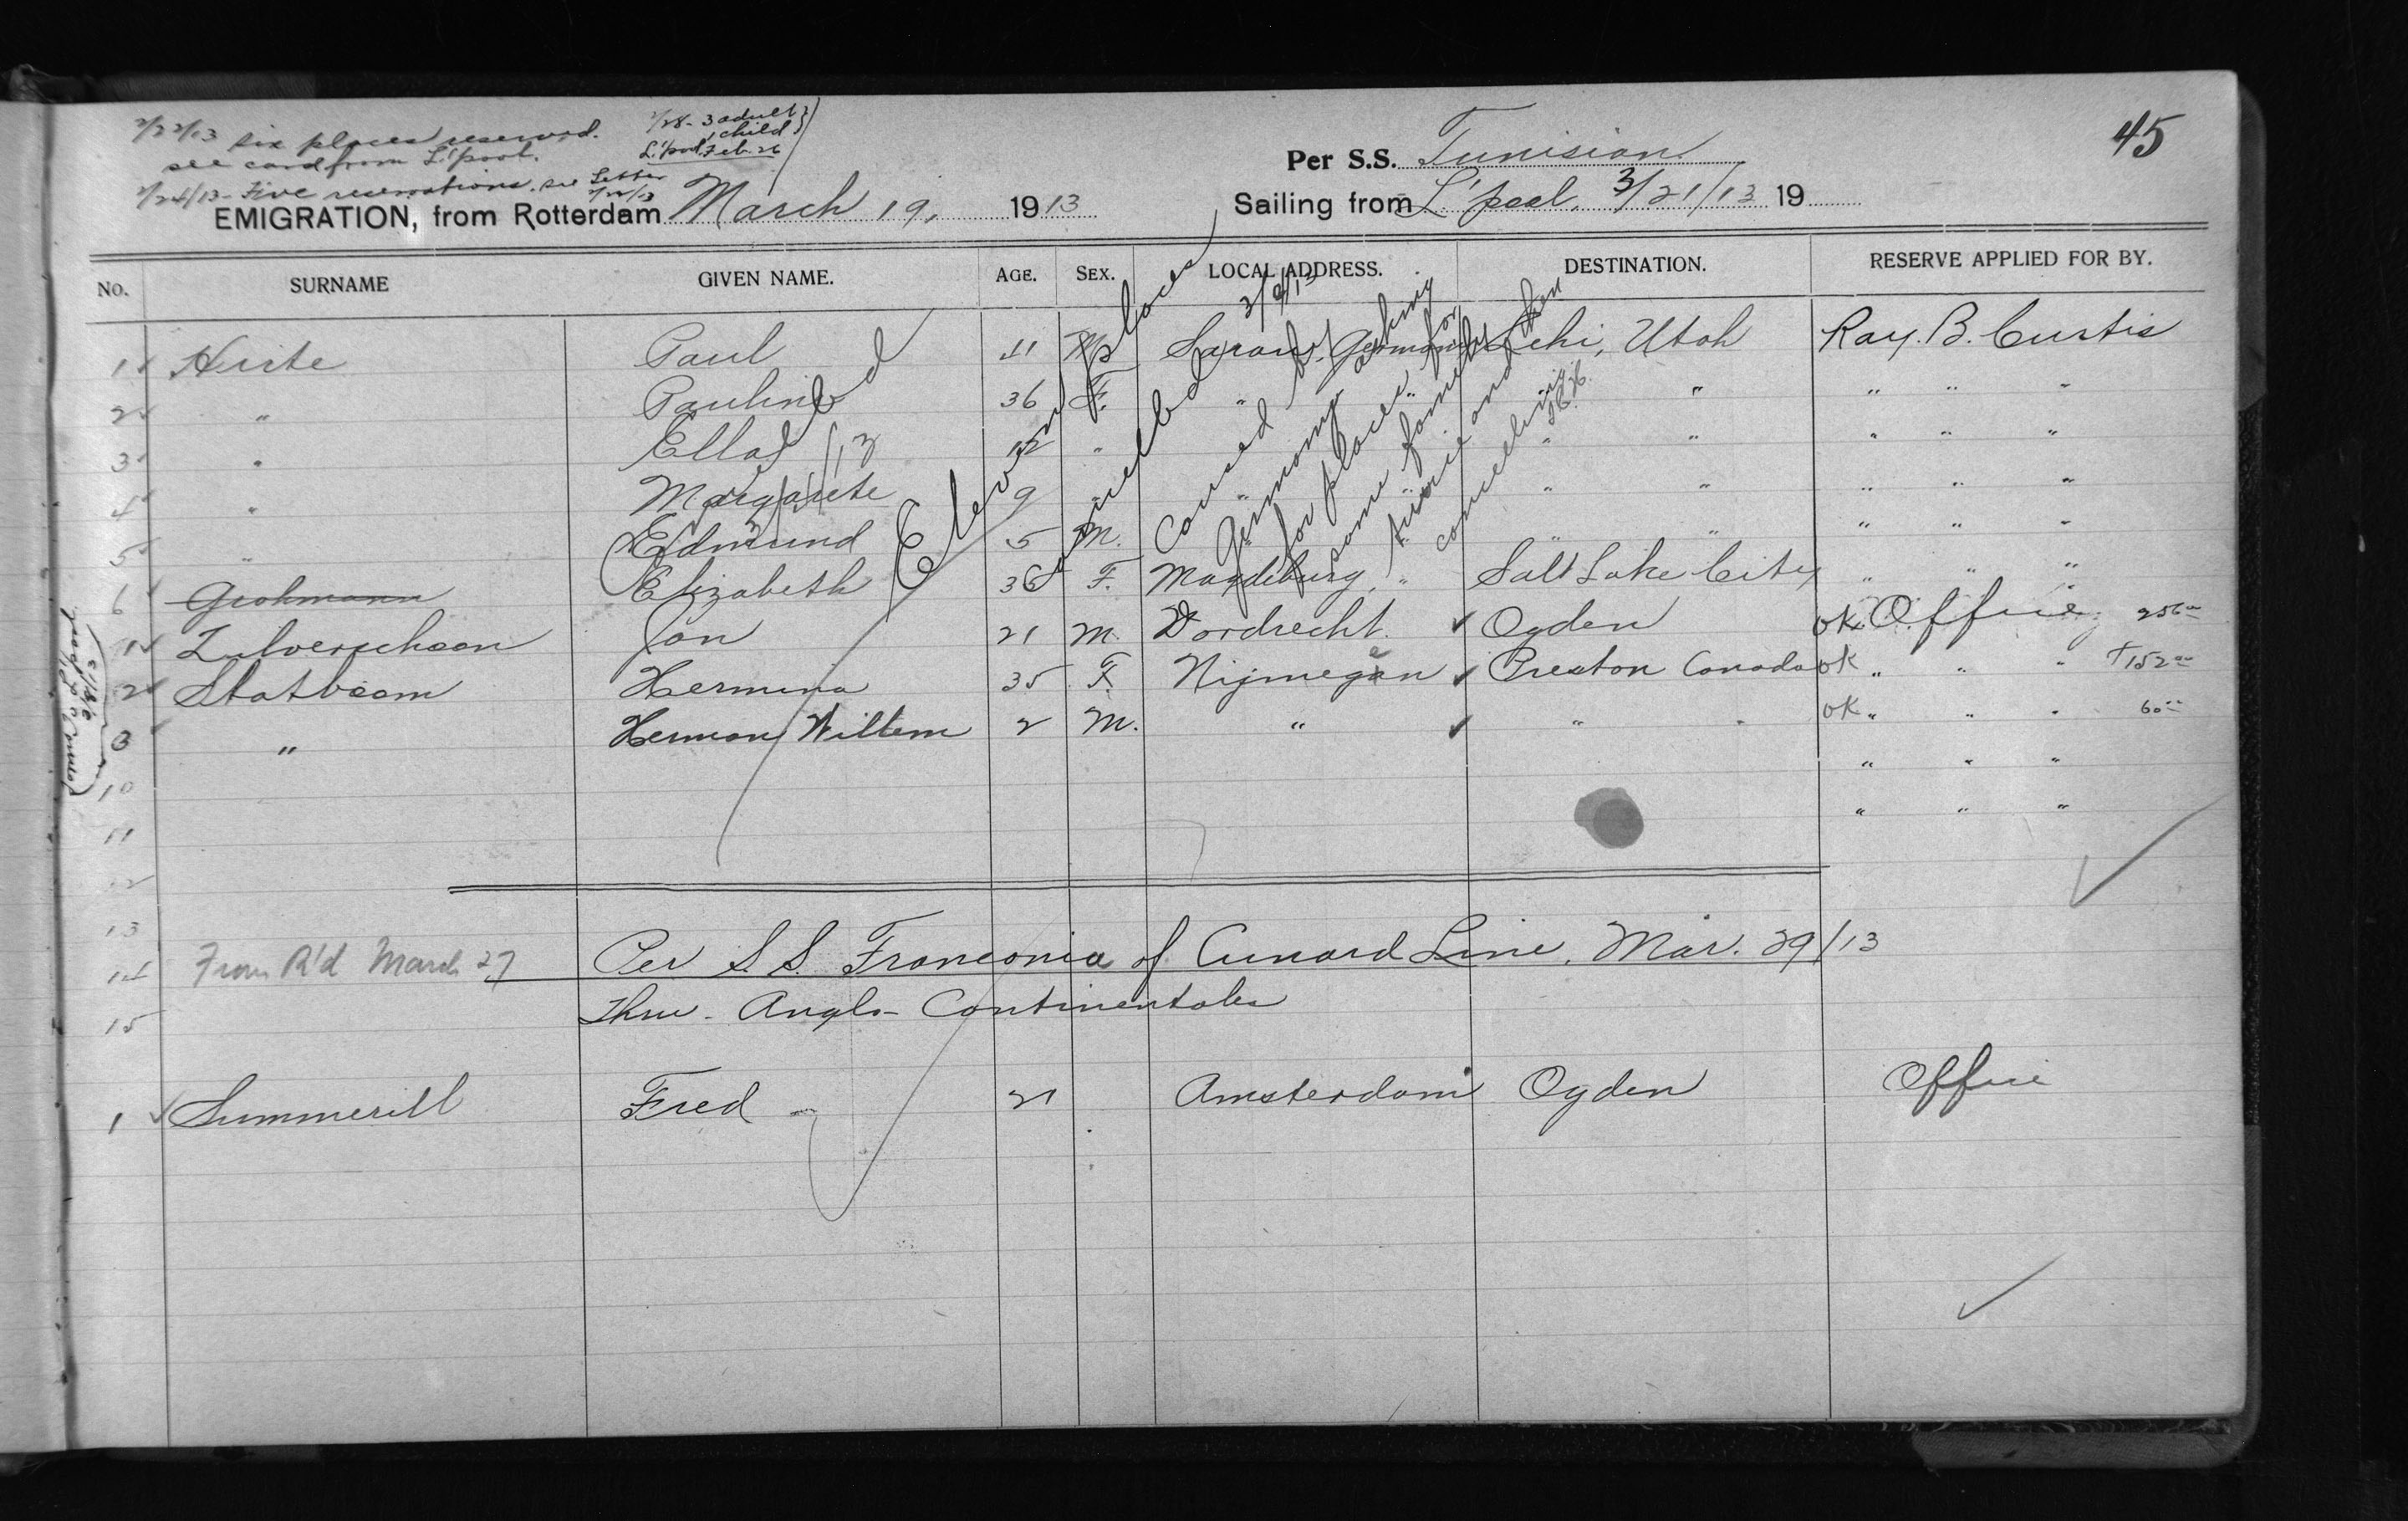 45
2/22/13 six places reserved.
see card from L'pool.
2/24/13 - Five reservations, see Letter
2/22/13
2/28 - 3 adult
1 child
L'pool, Feb. 26
Per S.S. Tunisian
EMIGRATION, from Rotterdam March 19, 1913
Sailing from L'pool, 3/21/13 19
No. SURNAME GIVEN NAME. AGE. SEX. LOCAL ADDRESS. DESTINATION. RESERVE APPLIED FOR BY.
1 Hirte Paul 41 M Sorau, Germany Lehi, Utah Ray. B. Curtis
2 " Pauline 36 F. " " " " " "
3 " Ella 12 " " " " " "
4 " Margarete 9 " " " " " " "
5 " Edmund 5 M. " " " " " "
6 Grohmann Elizabeth 36 F. Magdeburg, " Salt Lake City " " "
1 Zulverschoon Jan 21 M. Dordrecht. Ogden OK. Office 256
2 Statboom Hermina 35 F. Nijmegen Preston Canada OK " " " +152
3 " Herman Willem 2 M. " " " OK " " " 60
10 " " "
11 " " "
12
13
14
15
Eleven places
cancelled
3/8/13
Caused by
Germany asking
for places for
same family
twice and then
cancelling
From R'd March 27
Per S.S. Franconia of Cunard Line, Mar. 29/13
Thru - Anglo-Continentales
1 Summerill Fred 21 Amsterdam Ogden Office